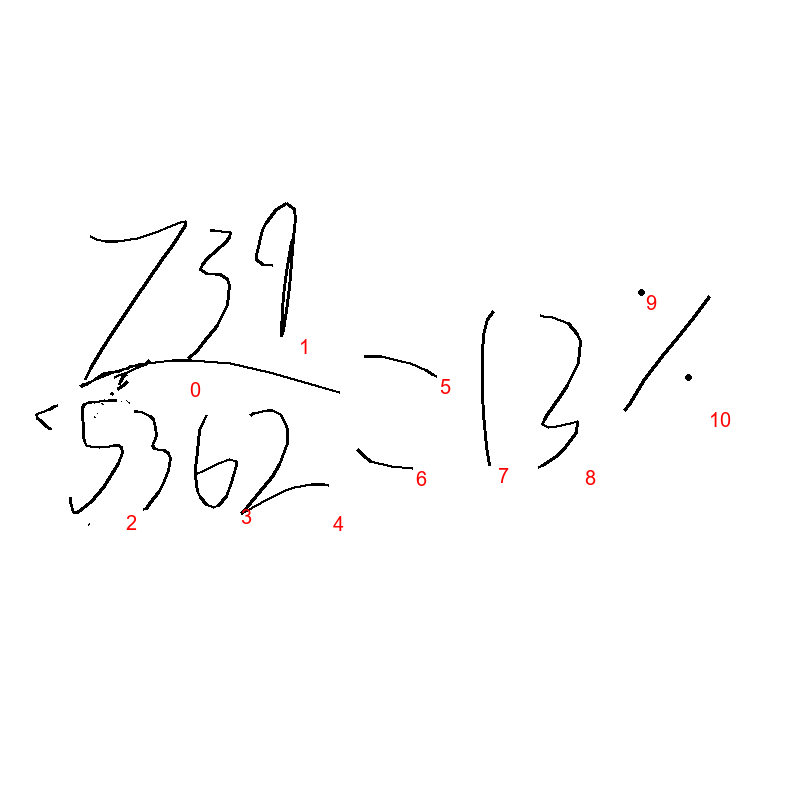 739
5362
= 13%
0
1
2
3
4
5
6
7
8
9
10